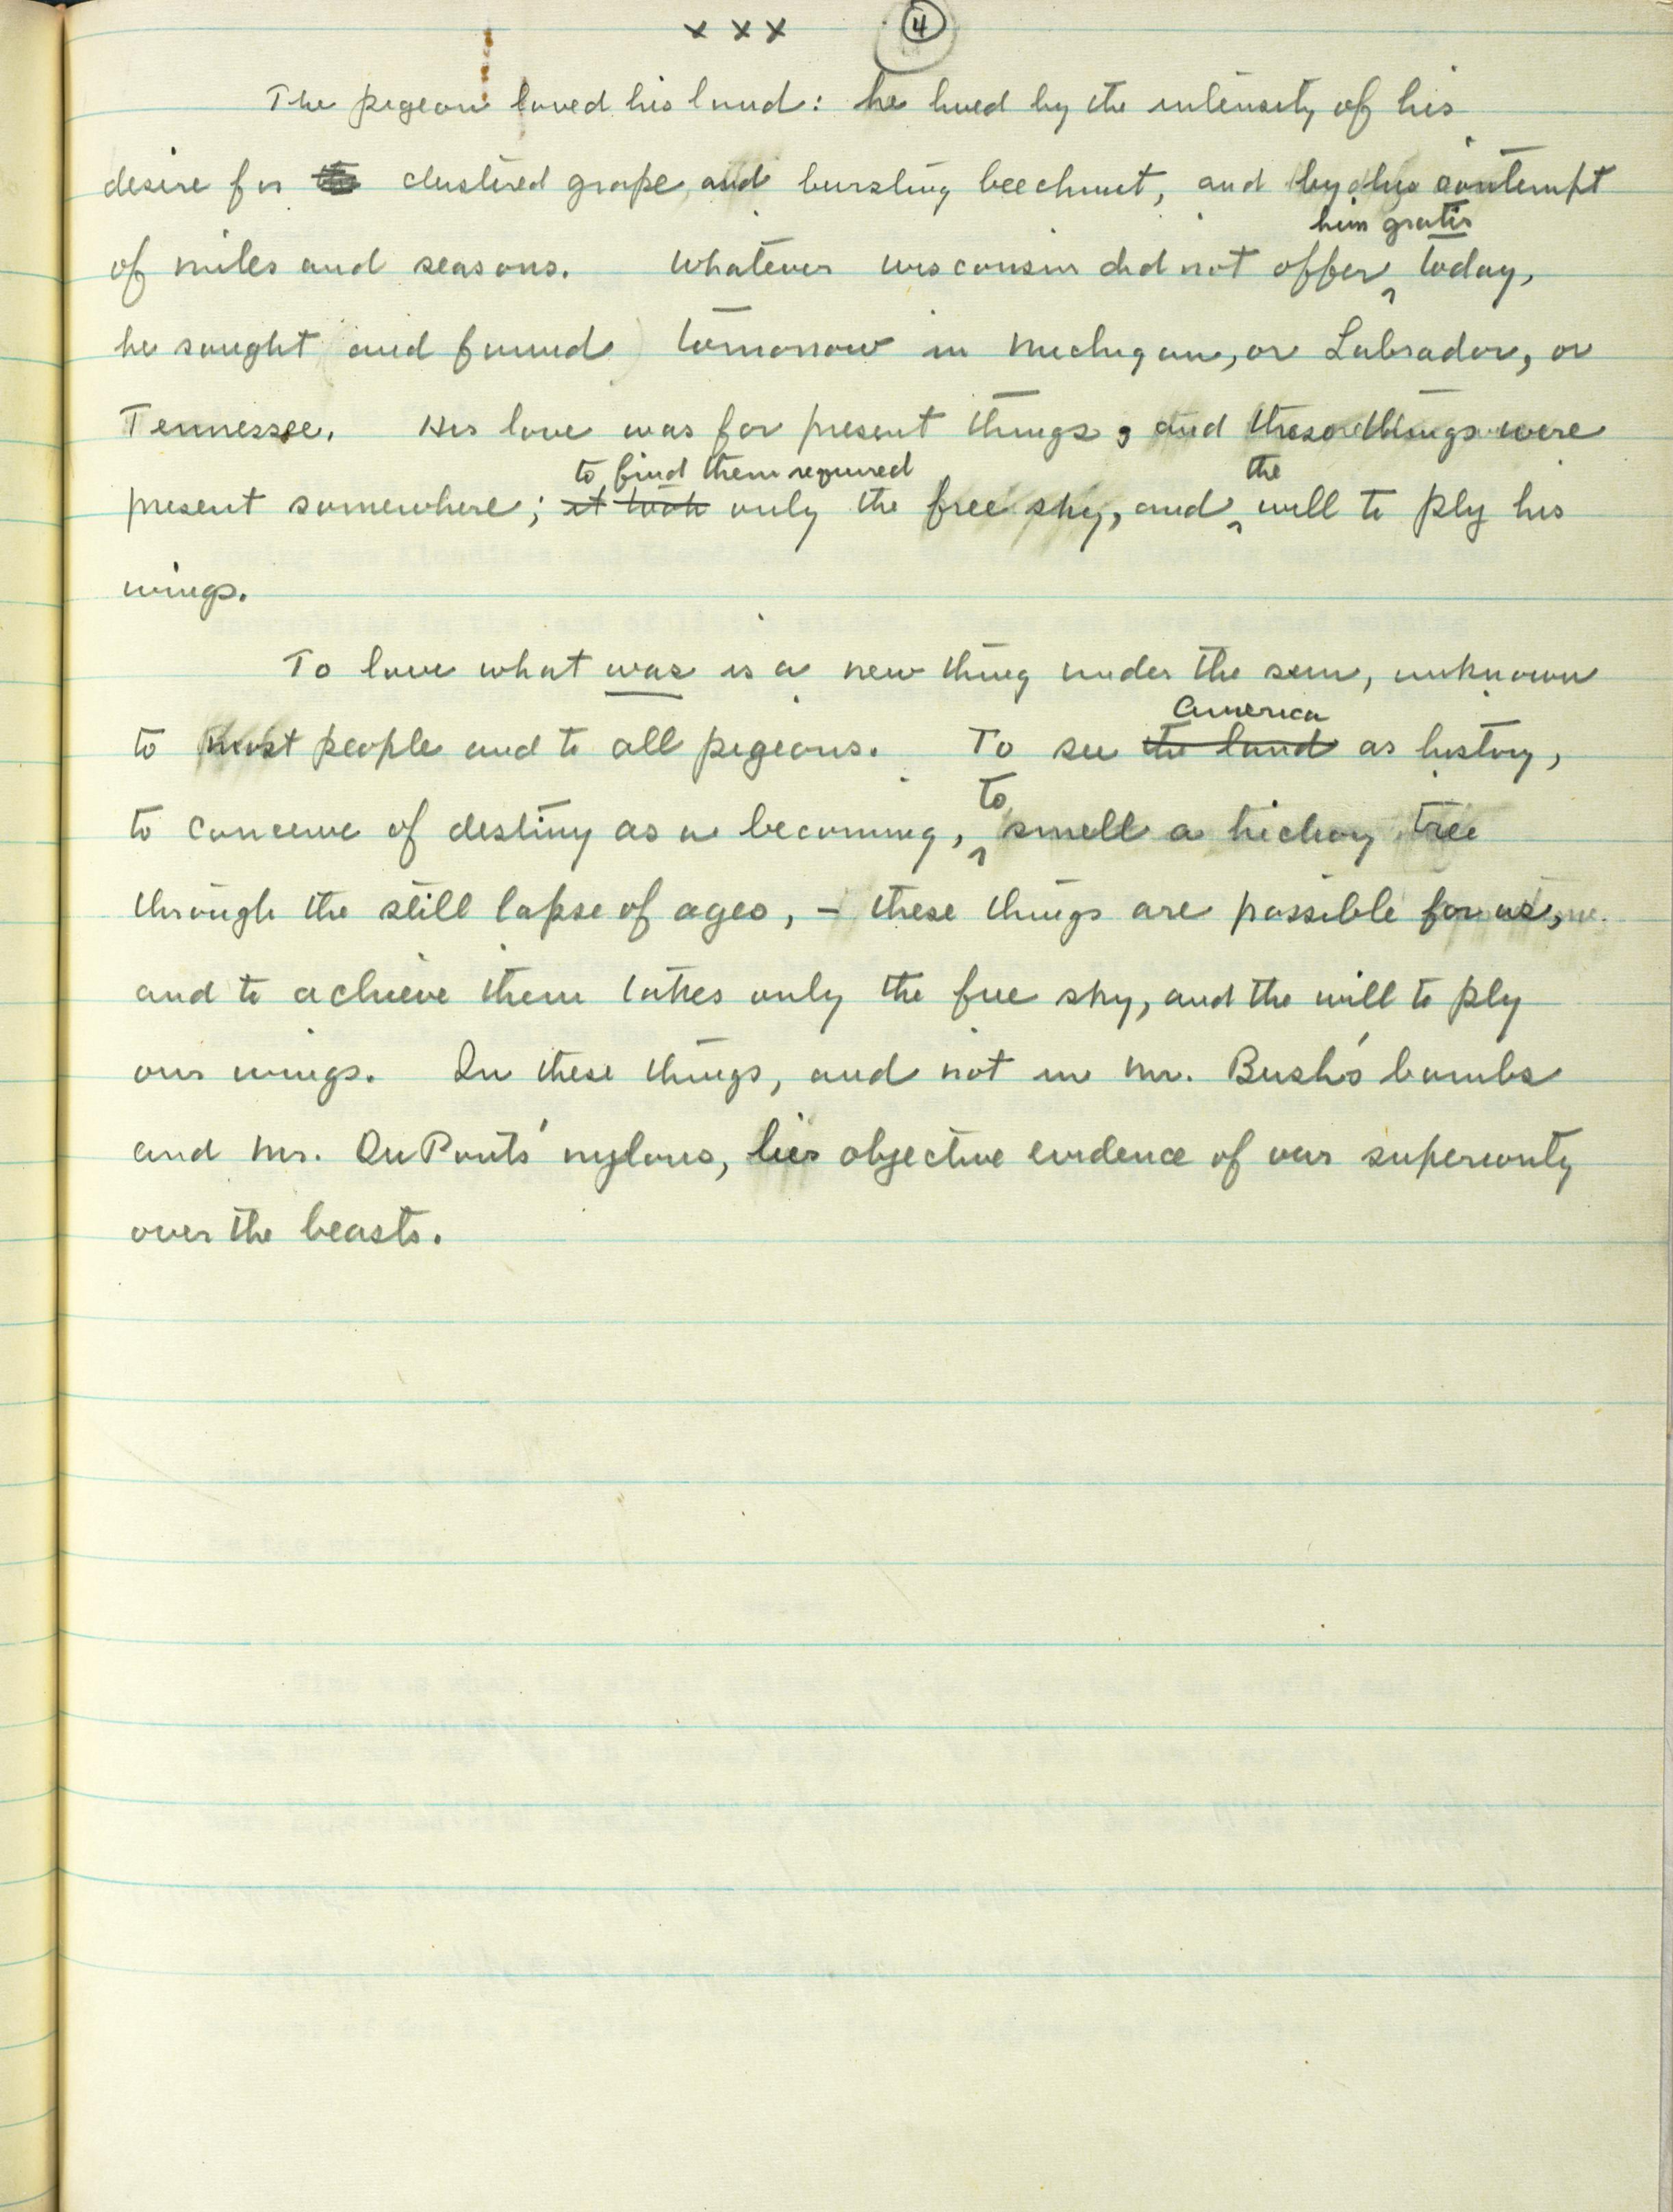 x x x 4
The pigeon loved his land: he lived by the intensity of his
desire for clustered grape and bursting beechnut, and by his contempt
him gratis
of miles and seasons. Whatever Wisconsin did not offer ^ today,
he sought and found tomorrow in Michigan, or Labrador, or
Tennessee. His love was for present things, and these things were
to find them required the
present somewhere; it took only the free sky, and ^ will to ply his
wings.
To love what was is a new thing under the sun, unknown
America
to most people and to all pigeons. To see the land as history,
to
to conceive of destiny as a becoming, ^ smell a hickory tree
through the still lapse of ages, – these things are possible for us,
and to achieve them takes only the free sky, and the will to ply
our wings. In these things, and not in Mr. Bush's bombs
and Mr. DuPont's nylons, lies objective evidence of our superiority
over the beasts.